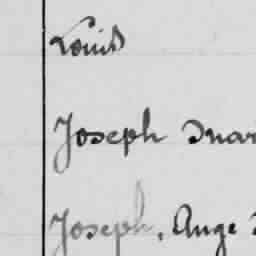 Louis
Joseph Mar
Joseph, Ange